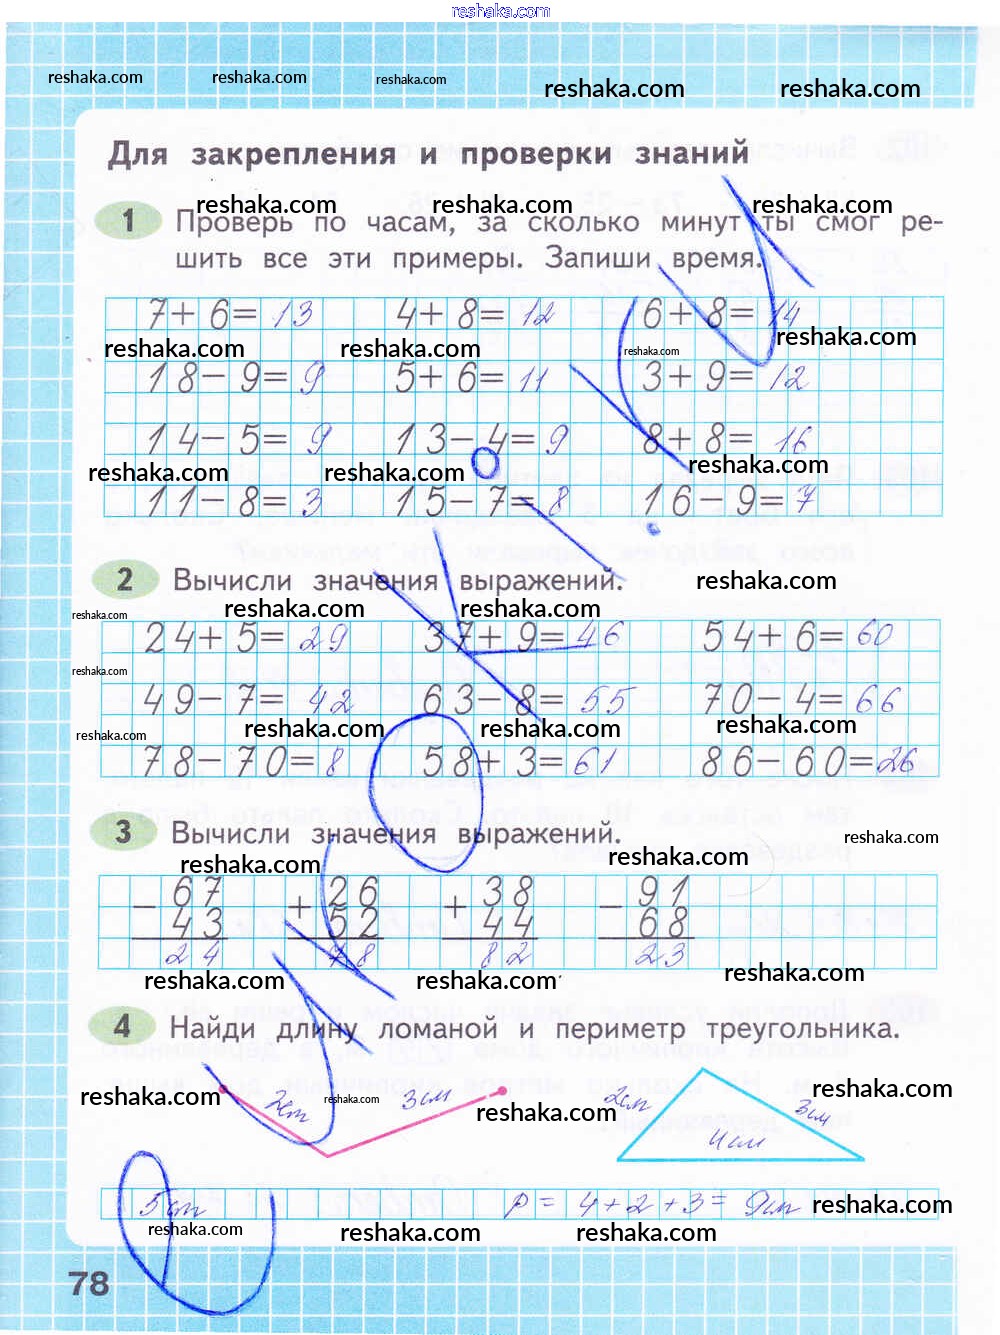 reshaka.com
reshaka.com reshaka.com reshaka.com reshaka.com reshaka.com
Для закрепления и проверки знаний
reshaka.com reshaka.com reshaka.com
1 Проверь по часам, за сколько минут ты смог ре-
шить все эти примеры. Запиши время.
7+6=13 4+8=12 6+8=14
reshaka.com reshaka.com reshaka.com reshaka.com
18-9=9 5+6=11 3+9=12
14-5=9 13-4=9 8+8=16
reshaka.com reshaka.com reshaka.com
11-8=3 15-7=8 16-9=7
2 Вычисли значения выражений.
reshaka.com
reshaka.com reshaka.com reshaka.com
24+5=29 37+9=46 54+6=60
reshaka.com
49-7=42 63-8=55 70-4=66
reshaka.com reshaka.com reshaka.com reshaka.com
78-70=8 58+3=61 86-60=26
3 Вычисли значения выражений.
reshaka.com reshaka.com reshaka.com
67 26 38 91
- + + -
43 52 44 68
24 78 82 23
reshaka.com reshaka.com reshaka.com
4 Найди длину ломаной и периметр треугольника.
reshaka.com 2см reshaka.com 3см reshaka.com 2см 3см reshaka.com
4см
5см P = 4+2+3= 9см reshaka.com
reshaka.com reshaka.com reshaka.com
78